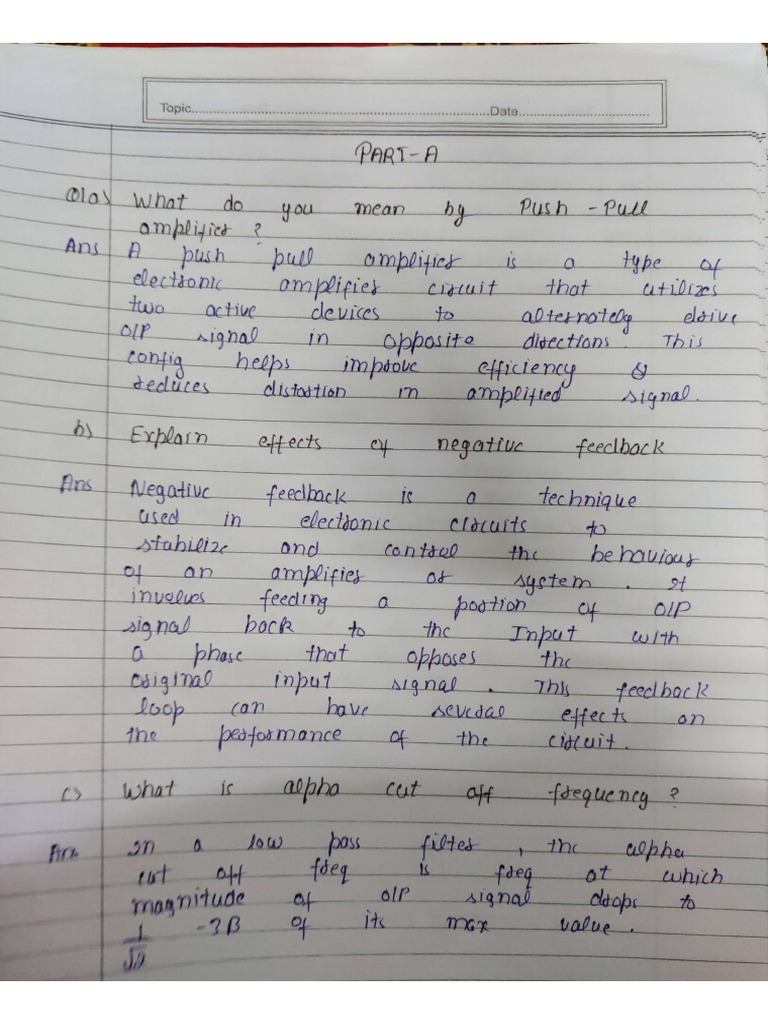 Topic.....................................................................Date.................................
PART-A
Q1a) What do you mean by Push-Pull
amplifier ?
Ans A push pull amplifier is a type of
electronic amplifier circuit that utilizes
two active devices to alternately drive
O/P signal in opposite directions. This
config helps improve efficiency &
reduces distortion in amplified signal.
b) Explain effects of negative feedback
Ans Negative feedback is a technique
used in electronic circuits to
stabilize and control the behaviour
of an amplifier or system. It
involves feeding a portion of O/P
signal back to the Input with
a phase that opposes the
original input signal. This feedback
loop can have several effects on
the performance of the circuit.
c) What is alpha cut off frequency ?
Ans In a low pass filter, the alpha
cut off freq is freq at which
magnitude of O/P signal drops to
1/√2 -3B of its max value.